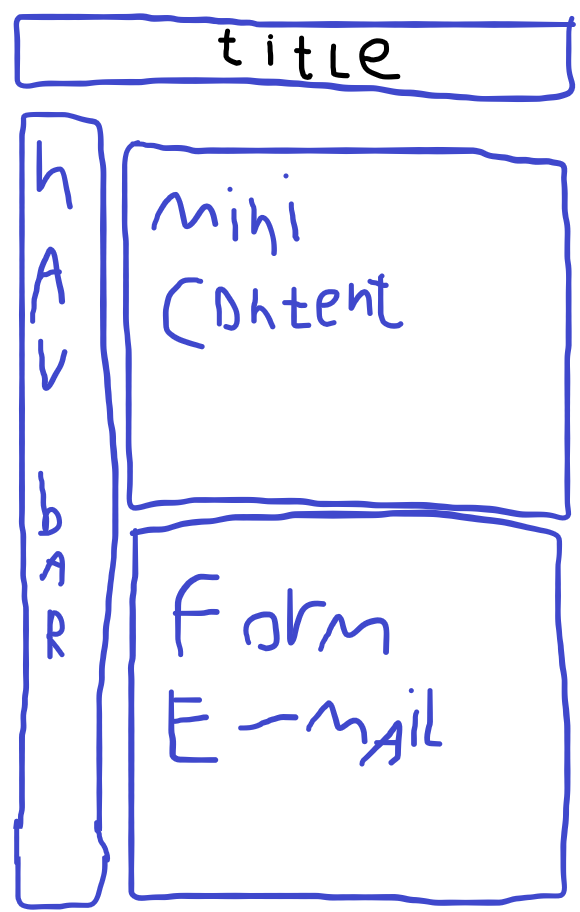 title
nAV bAR
mini
content
Form
E-mAil